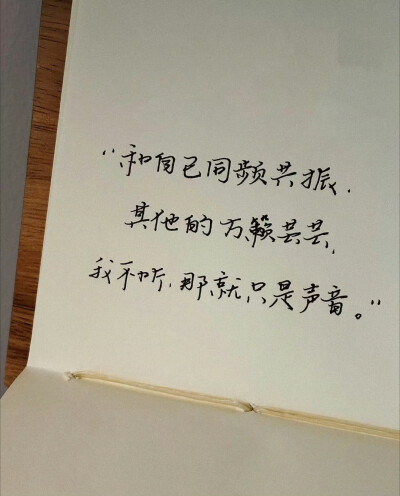 “和自己同频共振,
其他的万籁芸芸,
我不听,那就只是声音。”